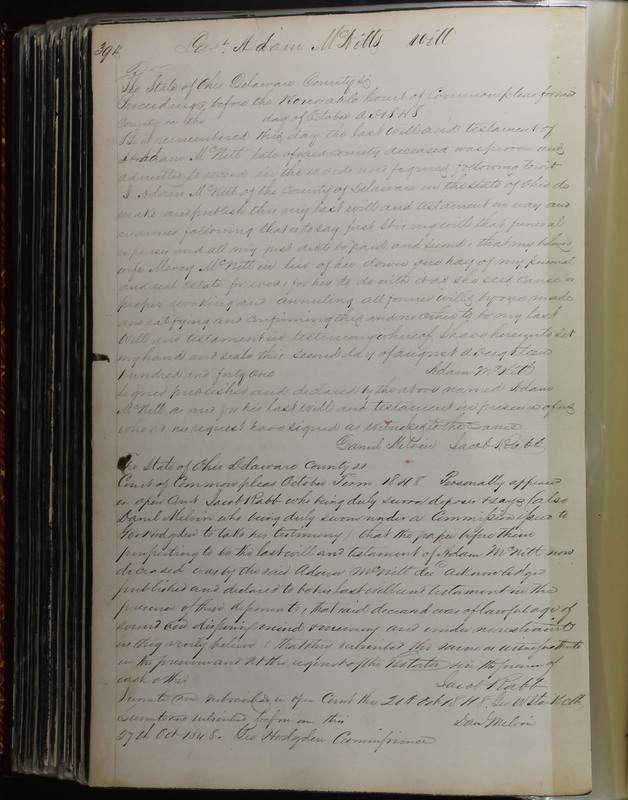 394 Adam McKitts will
The State of Ohio Delaware County ss
Proceedings before the Honorable Court of Common pleas for said
County on the day of October AD 1848
Be it remembered this day the last Will and testament of
Adam McKitt late of said county deceased was proven and
admitted to record in the words and figures following to wit
I Adam McKitt of the County of Delaware in the State of Ohio do
make and publish this my last will and testament in way and
manner following that is to say first it is my will that funeral
expenses and all my just debts be paid and second that my beloved
wife Mercy McKitt in lieu of her dower one half of my personal
and real estate for ever for her to do with it as she sees cause or
proper revoking and annuling all former wills by me made
and ratifying and confirming this and no other to be my last
Will and testament in testimony whereof I have hereunto set
my hand and seals this second day of august A D eighteen
hundred and forty one Adam McKitt
Signed published and declared by the above named Adam
McKitt as and for his last will and testament in presence of us
who at his request have signed as witnesses to the same
Daniel Melvin Jacob Rabb
The State of Ohio Delaware County ss
Court of Common pleas October Term 1848 Personally appeared
in open Court Jacob Rabb who being duly sworn deposes & says (also
Daniel Melvin who being duly sworn under a Commission issued to
Geo Hodgden to take his testimony) that the paper before them
purporting to be the last will and testament of Adam McKitt now
deceased was by the said Adam McKitt decd acknowledged
published and declared to be his last will and testament in the
presence of these deponents, that said deceased was of lawful age of
sound and disposing mind & memory and under no restraint
as they verily believe & that they subscribed the same as witnesses
in the presence and at the request of the Testator & in the presence of
each other Jacob Rabb
Sworn to and subscribed in open Court this 21st Oct 1848
Sworn to and subscribed before me this Danl Melvin
27th Oct 1848. Geo Hodgden Commissioner